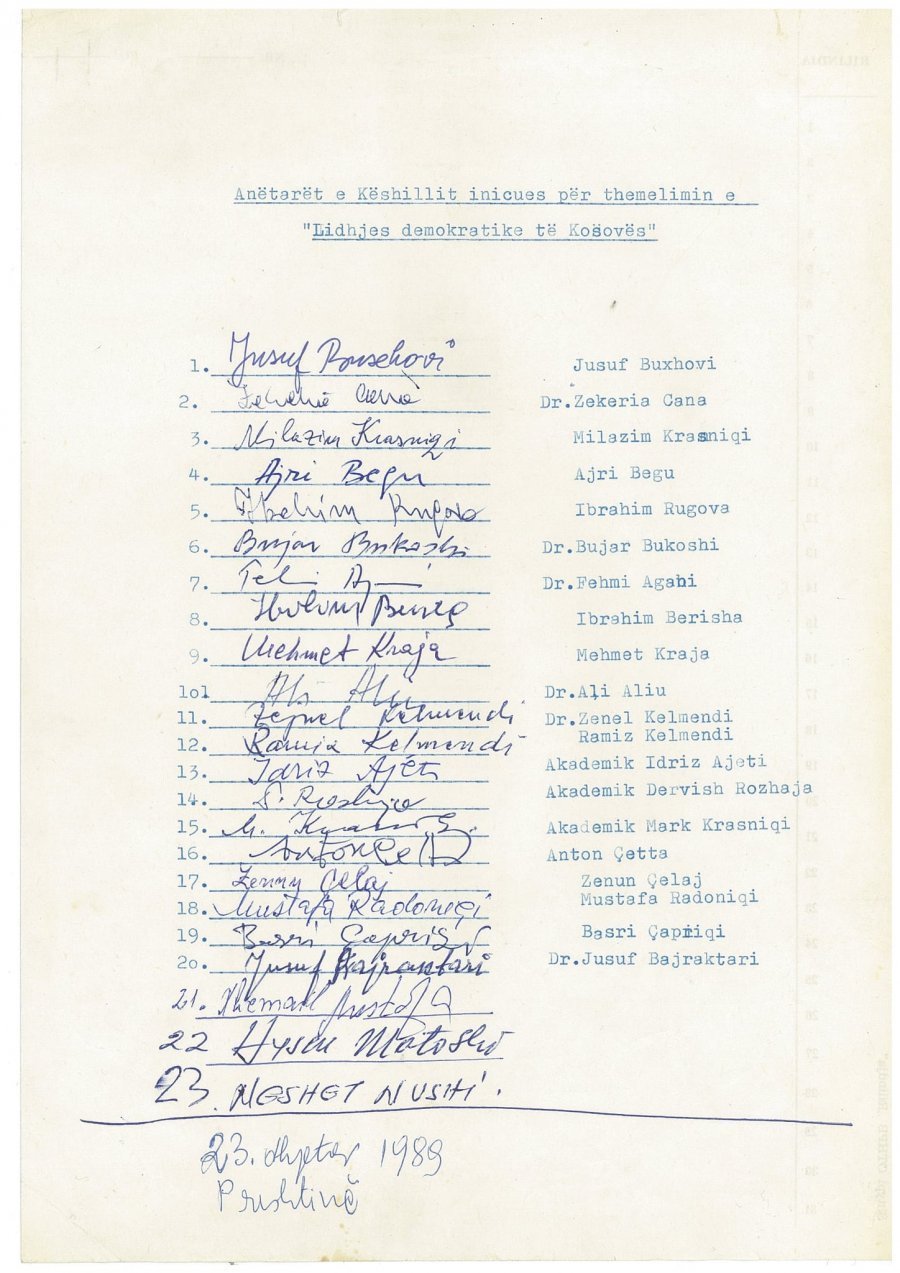 Anëtarët e Këshillit inicues për themelimin e
"Lidhjes demokratike të Kosovës"
1. Jusuf Buxhovi Jusuf Buxhovi
2. Zekeria Cana Dr.Zekeria Cana
3. Milazim Krasniqi Milazim Krasniqi
4. Ajri Begu Ajri Begu
5. Ibrahim Rugova Ibrahim Rugova
6. Bujar Bukoshi Dr.Bujar Bukoshi
7. Dr.Fehmi Agani
8. Ibrahim Berisha
9. Mehmet Kraja Mehmet Kraja
1o1 Ali Aliu Dr.Ali Aliu
11. Zejnel Kelmendi Dr.Zenel Kelmendi
12. Ramiz Kelmendi Ramiz Kelmendi
13. Idriz Ajeti Akademik Idriz Ajeti
14. Akademik Dervish Rozhaja
15. Akademik Mark Krasniqi
16. Anton Çetta Anton Çetta
17. Zenun Çelaj Zenun Çelaj
18. Mustafa Radoniqi Mustafa Radoniqi
19. Basri Çapriqi Basri Çapriqi
2o. Jusuf Bajraktari Dr.Jusuf Bajraktari
21. Xhemail Mustafa
22 Hysen Matoshi
23. NESHET NUSHI.
23. dhjetor 1989
Prishtinë